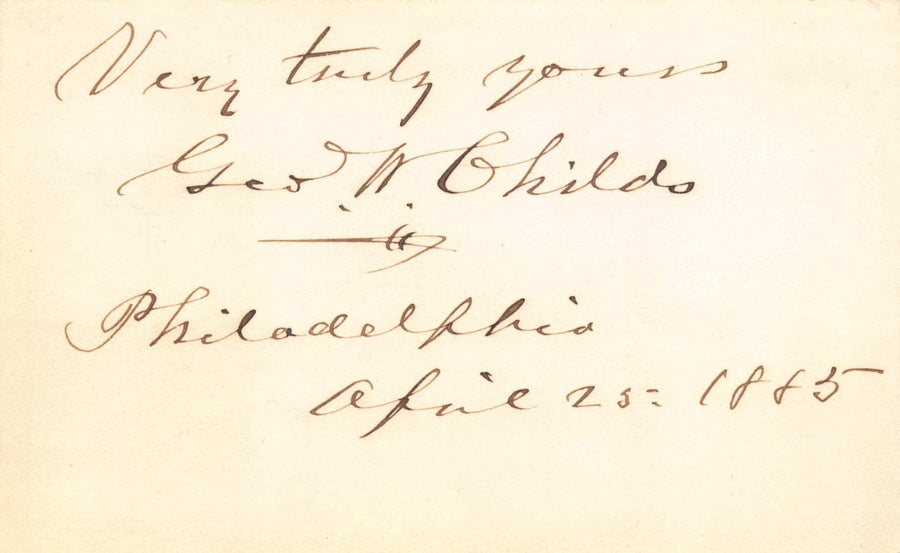 Very truly yours
Geo. W. Childs
Philadelphia
April 25= 1885